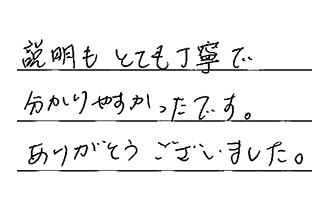 説明もとても丁寧で
分かりやすかったです。
ありがとうございました。